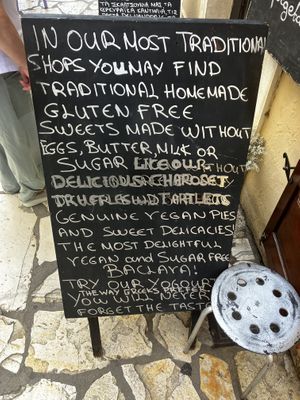 IN OUR MOST TRADITIONAL
SHOPS YOU MAY FIND
TRADITIONAL HOMEMADE
GLUTEN FREE
SWEETS MADE WITHOUT
EGGS, BUTTER, MILK OR
SUGAR LIKE OUR
DELICIOUS CHAROSET
TRUFFLES AND TARTLETS
GENUINE VEGAN PIES
AND SWEET DELICACIES!
THE MOST DELIGHTFUL
VEGAN AND SUGAR FREE
BACLAVA!
TRY OUR YOGOURT
THE WAY GREEKS
YOU WILL NEVER
FORGET THE TASTE